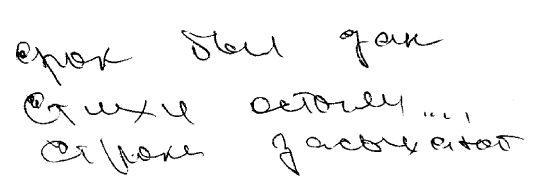 срок был дан
Стихи остыли....
строки засыхают